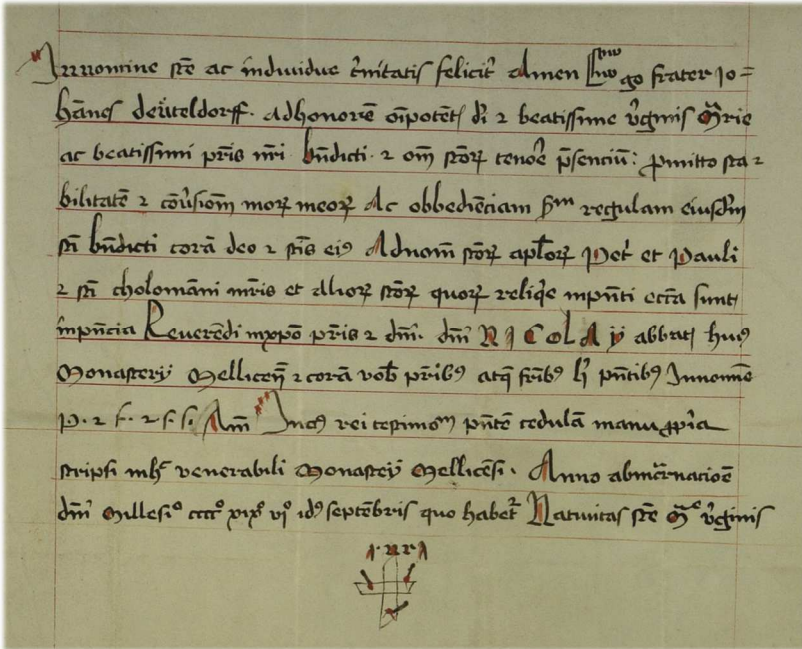 In nomine scē ac indiuidue t̄nitatis felicit̄ Amen Ego frater Jo=
hānes de Weiteldorff. Ad honorē oīpotent dī ⁊ beatissime v̄ginis M̄rie
ac beatissimi pr̄is nr̄i bn̄dicti ⁊ om̄ scōꝝ tenōe p̄senciū: ꝓmitto sta⸗
bilitatē ⁊ cōu̓siom̄ moꝝ meoꝝ Ac obbediēciam ẜm regulam eiusdm̄
scī bn̄dicti corā deo ⁊ scīs eiꝰ Ad nom̄ scōꝝ apl̄oꝝ Pet̓ et Pauli
⁊ scī cholomāni mr̄is et alioꝝ scōꝝ quoꝝ reliqͥe in pn̄ti ecc̄a sunt
in pn̄cia Reuerēdi in xpo pr̄is ⁊ dn̄i. dn̄i NICOLAY abbatꝭ huiꝰ
Monastery Mellicen̄ ⁊ corā vob̄ pr̄ibꝰ atqꝫ fr̄ibꝰ pn̄tibꝰ In nomīe
P. ⁊ f. ⁊ s. s. Am̄ In cꝰ rei testimom̄ pn̄tē cedulā manu ꝓpͥa
scripsi in hͦ venerabili Monastey̓ Mellicēsi. Anno ab incͣrnacioē
dn̄i Millesiͦ ccccͦ xixͦ vjͦ idꝰ septēbris quo habet̓ Natiuitas scē Mͬe v̄ginis